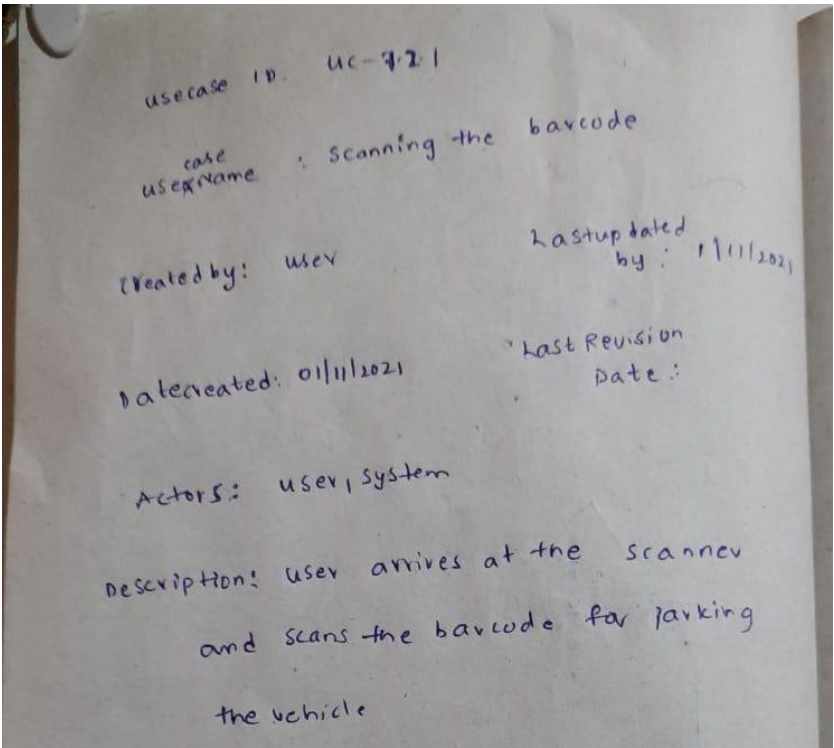 usecase ID. UC-7.2.1
case
username : scanning the barcode
Created by: user
Lastupdated
by: 1/11/2021
Datecreated: 01/11/2021
Last Revision
Date:
Actors: user, system
Description: user arrives at the scanner
and scans the barcode for parking
the vehicle